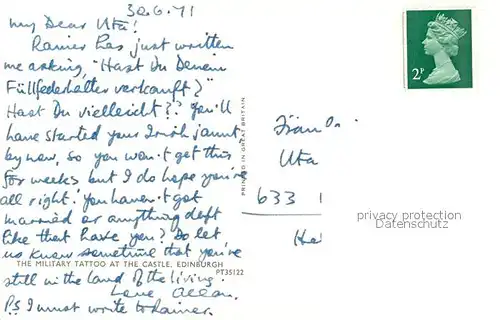 30.6.71
My Dear Uta!
Rainer has just written
me asking, "Hast Du Deinen
Füllfederhalter verkauft?"
Hast Du vielleicht?? You'll
have started your Irish jaunt
by now, so you won't get this
for weeks but I do hope you're
all right! You haven't got
married or anything daft
like that have you? Do let
us know sometime that you're
still in the land of the living.
Love
PS I must write to Rainer.
THE MILITARY TATTOO AT THE CASTLE, EDINBURGH
PT35122
PRINTED IN GREAT BRITAIN
2P
Uta
633
privacy protection
Datenschutz